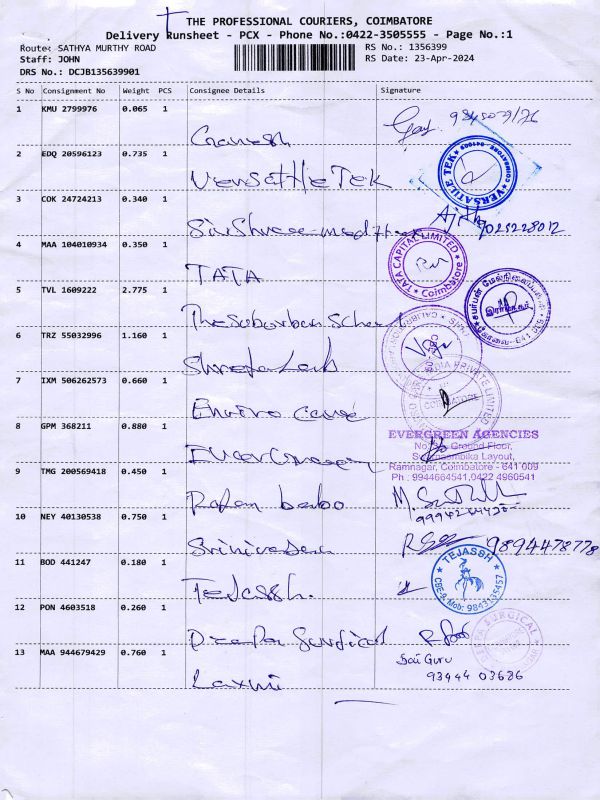 THE PROFESSIONAL COURIERS, COIMBATORE
Delivery Runsheet - PCX - Phone No.:0422-3505555 - Page No.:1
Route: SATHYA MURTHY ROAD
RS No.: 1356399
Staff: JOHN
RS Date: 23-Apr-2024
DRS No.: DCJB135639901
S No Consignment No Weight PCS Consignee Details Signature
1 KMU 2799976 0.065 1
Ganesh
2 EDQ 20596123 0.735 1
Versattle Tek
VERSATILE TEK
3 COK 24724213 0.340 1
4 MAA 104010934 0.350 1
TATA
TATA CAPITAL LIMITED
Coimbatore
5 TVL 1609222 2.775 1
The Suburban School
6 TRZ 55032996 1.160 1
7 IXM 506262573 0.660 1
Enviro Care
COIMBATORE
8 GPM 368211 0.880 1
EVERGREEN AGENCIES
Ground Floor,
Layout,
Ramnagar, Coimbatore - 641 009
Ph.: 9944664541,0422 4960541
9 TMG 200569418 0.450 1
Ratan baboo
10 NEY 40130538 0.750 1
Srinivasan
9894478778
11 BOD 441247 0.180 1
Tejassh.
TEJASSH
CBE-9. Mob: 98431 35457
12 PON 4603518 0.260 1
Deepa Surgical
13 MAA 944679429 0.760 1
Laxmi
Sai Guru
93444 03686